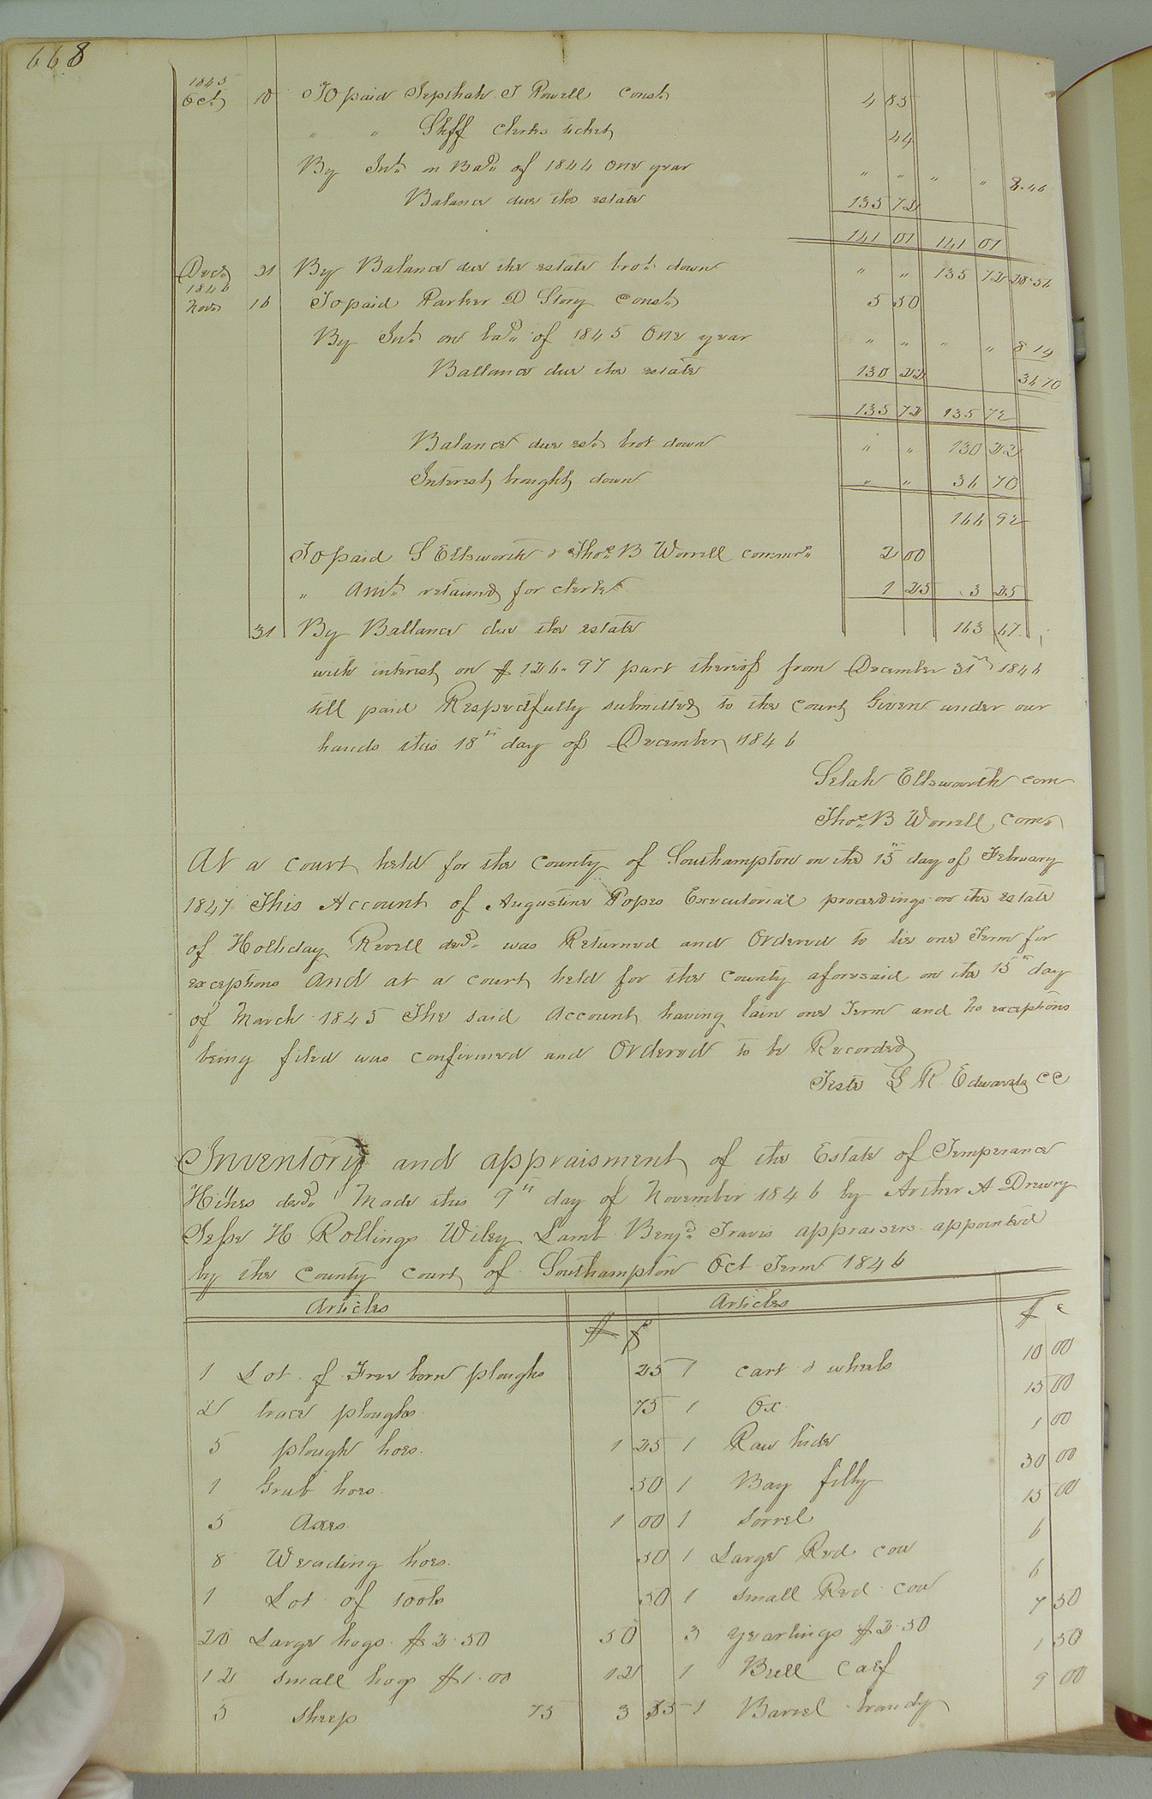 668
1845
Oct 10 To paid Jephthah J Powell Const. 4 85
" " Shff clerks ticket 44
By Int. on Bal. of 1844 One year " " " " 8.46
Balance due the estate 135 72
141 01 141 01
Dec 31 By Balance due the estate brot. down " " 135 72 28.56
1846
Nov 16 To paid Parker D Story Const. 5 50
By Int. on bal. of 1845 One year " " " " 8 14
Ballance due the estate 130 22 36 70
135 72 135 72
Balance due est. brot down " " 130 22
Interest brought down " " 36 70
166 92
To paid S Ellsworth & Thos. B Worrell commrs. 2 00
" Amt. retained for clerk 1 25 3 25
31 By Ballance due the estate 163 67
with interest on $126.97 part thereof from December 31st 1846
till paid Respectfully submitted to the Court Given under our
hands this 18th day of December 1846
Selah Ellsworth com
Thos. B Worrell com.
At a court held for the County of Southampton on the 15th day of February
1847 This Account of Augustine Popes Executorial proceedings on the estate
of Holliday Revell decd. was Returned and Ordered to lie one Term for
exceptions And at a court held for the County aforesaid on the 15th day
of March 1845 The said Account having lain one Term and no exceptions
being filed was confirmed and Ordered to be Recorded
Teste L R Edwards CC
Inventory and appraisment of the Estate of Temperance
Hikes decd. Made this 9th day of November 1846 by Arther A Drewry
Jesse H Rollings Wiley Lamb Benj. Travis appraisers appointed
by the county court of Southampton Oct Term 1846
Articles $ ¢ Articles $ c
1 Lot of Free born ploughs 25 1 cart & wheels 10 00
2 trace ploughs 75 1 Ox 15 00
5 plough hoes 1 25 1 Raw hide 1 00
1 Grub hoes 50 1 Bay filly 30 00
5 Axes 1 00 1 Sorrel 15 00
8 Weading hoes 50 1 Large Red cow 6
1 Lot of tools 50 1 small Red cow 6
20 Large hogs $2.50 50 3 yearlings $2.50 7 50
12 small hogs $1.00 12 1 Bull calf 1 50
5 sheep 75 3 75 1 Barrel brandy 9 00